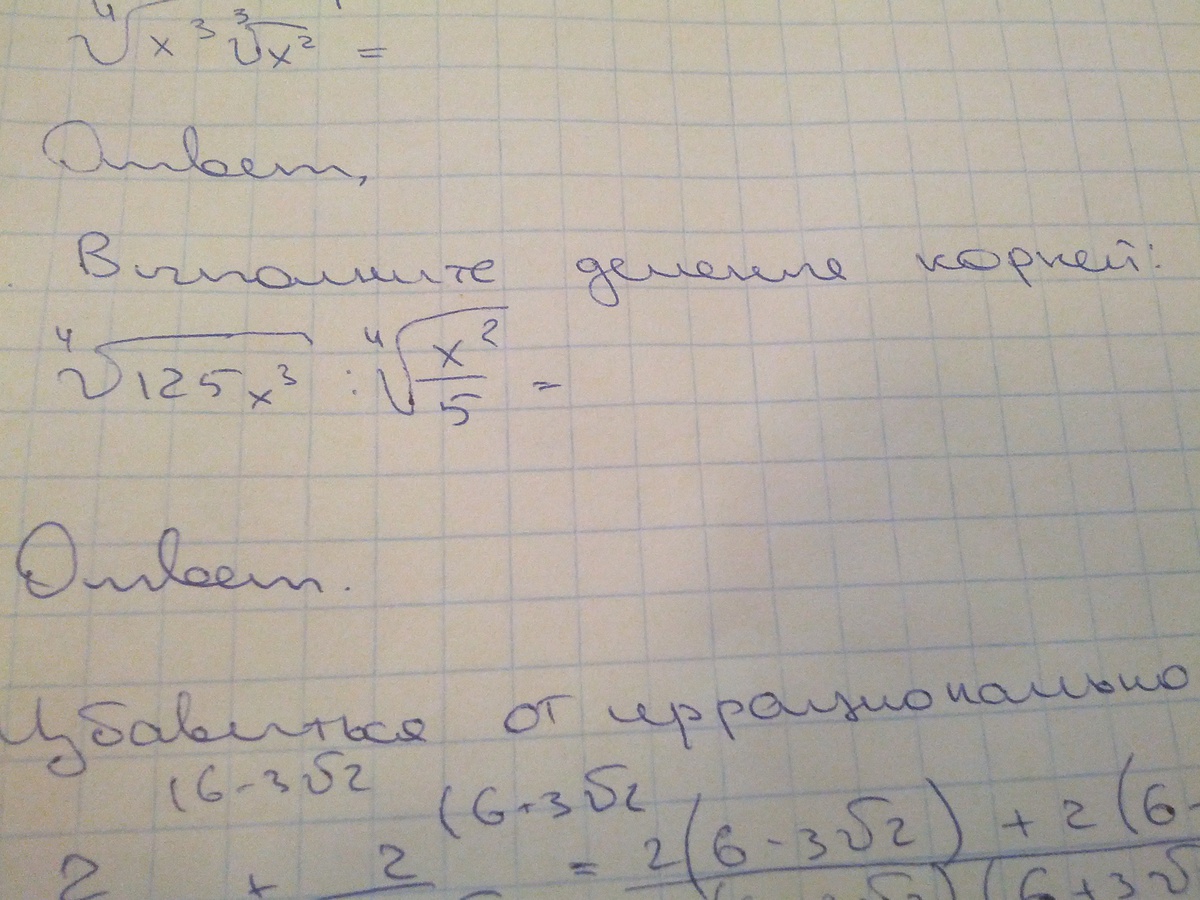 ⁴√x ³ ³√x² =
Ответ,
Выполните деление корней:
⁴√125x³ : ⁴√x²/5 =
Ответ.
Избавиться от иррационально
(6-3√2 (6+3√2
2 + 2 = 2(6-3√2) + 2(6-
√2)(6+3√